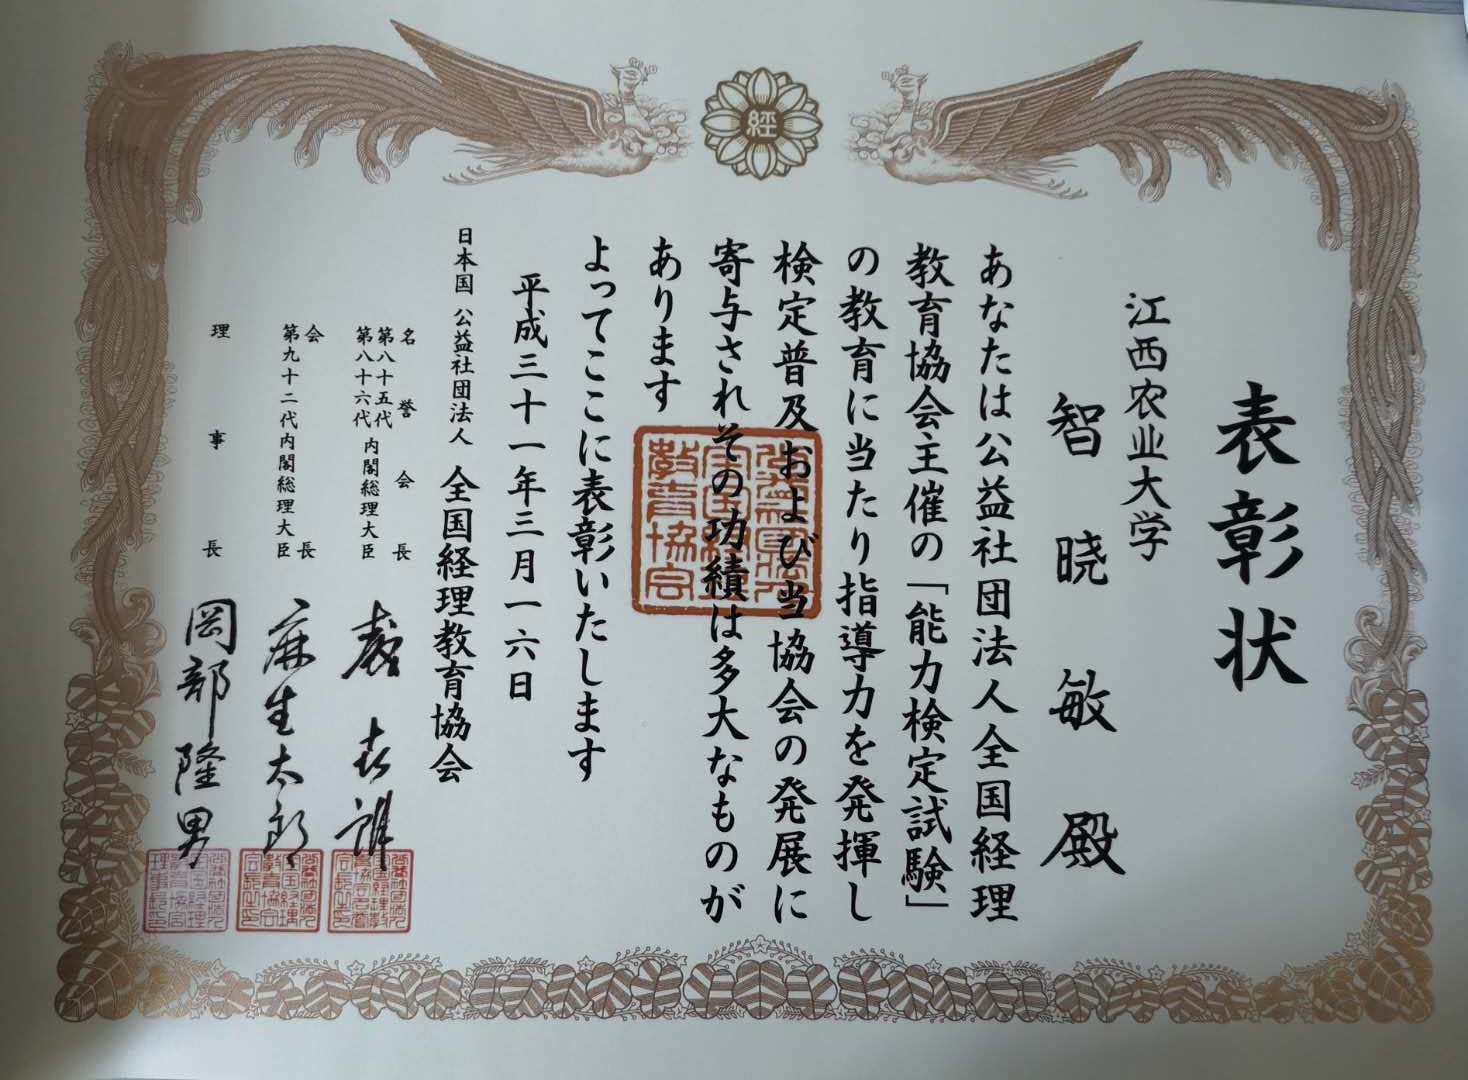 経
表彰状
江西农业大学
智晓敏殿
あなたは公益社団法人全国経理
教育協会主催の「能力検定試験」
の教育に当たり指導力を発揮し
検定普及および当協会の発展に
寄与されその功績は多大なものが
あります
よってここに表彰いたします
平成三十一年三月一六日
日本国 公益社団法人 全国経理教育協会
名誉会長
第八十五代
第八十六代
内閣総理大臣
会長
第九十二代内閣総理大臣
麻生太郎
理事長
岡部隆男